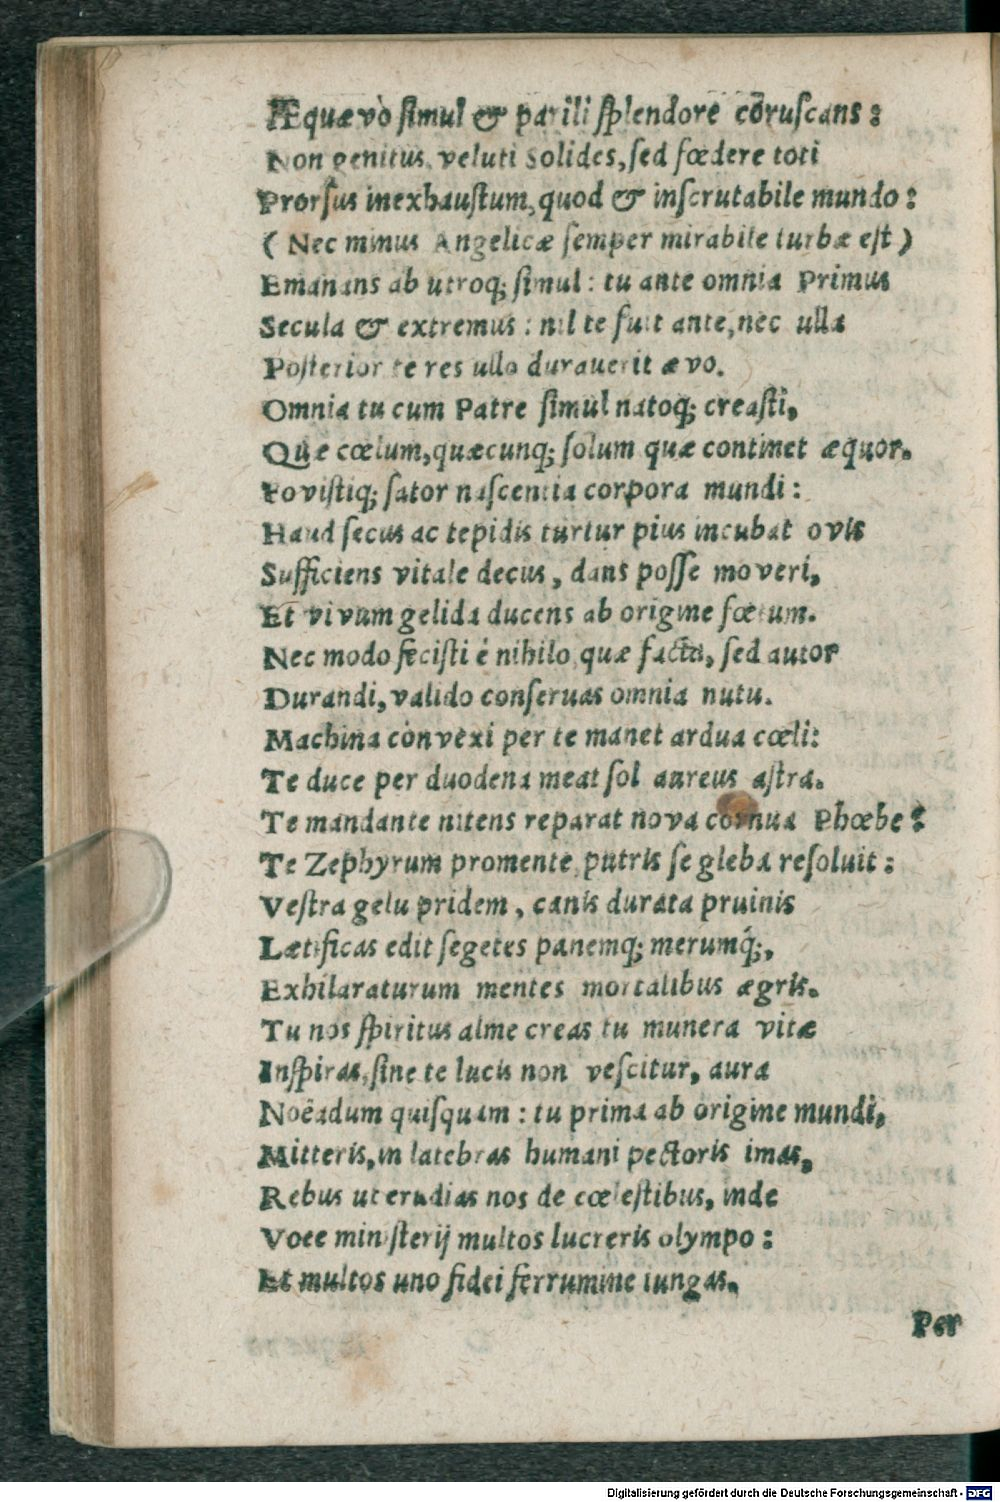 Æquævò simul & parili splendore coruscans:
Non genitus, veluti Solides, sed fœdere toti
Prorsus inexhaustum, quod & inscrutabile mundo:
(Nec minus Angelicæ semper mirabile turbæ est)
Emanans ab utroq; simul: tu ante omnia Primus
Secula & extremus: nil te fuit ante, nec ulla
Posterior te res ullo durauerit ævo.
Omnia tu cum Patre simul natoq; creasti,
Quæ cœlum, quæcunq; solum quæ continet æquor.
Fovistiq; sator nascentia corpora mundi:
Haud secus ac tepidis turtur pius incubat ovis
Sufficiens vitale decus, dans posse moveri,
Et vivum gelida ducens ab origine fœtum.
Nec modo fecisti è nihilo, quæ facta, sed autor
Durandi, valido conseruas omnia nutu.
Machina convexi per te manet ardua cœli:
Te duce per duodena meat sol aureus astra.
Te mandante nitens reparat nova cornua Phœbe:
Te Zephyrum promente, putris se gleba resoluit:
Vestra gelu pridem, canis durata pruinis
Lætificas edit segetes panemq; merumq;,
Exhilaraturum mentes mortalibus ægris.
Tu nos spiritus alme creas tu munera vitæ
Inspiras, sine te lucis non vescitur, aura
Noëadum quisquam: tu prima ab origine mundi,
Mitteris, in latebras humani pectoris imas,
Rebus ut erudias nos de cœlestibus, inde
Voce ministerij multos lucreris olympo:
Et multos uno fidei ferrumine iungas.
Per
Digitalisierung gefördert durch die Deutsche Forschungsgemeinschaft - DFG